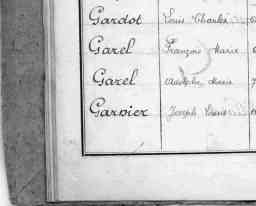 Gardot Louis Charles
Garel François Marie
Garel Adolphe Marie
Garnier Joseph